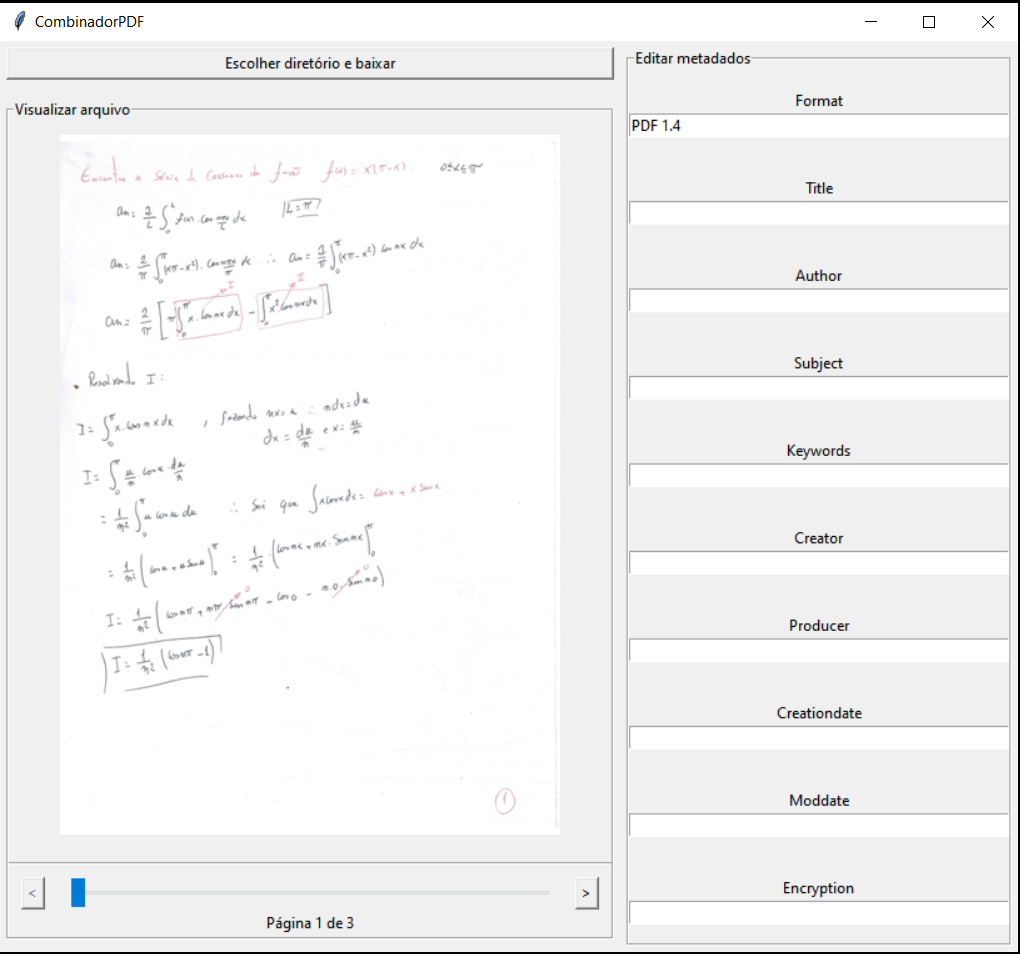 CombinadorPDF
Escolher diretório e baixar
Visualizar arquivo
Encontre a série de Cossenos da função f(x) = x(π-x). 0≤x≤π
an = 2/L ∫₀ᴸ f(x).cos nπx/L dx |L=π|
an = 2/π ∫₀^π (xπ-x²).cos nπx/π dx ∴ an = 2/π ∫₀^π (xπ-x²) cos nx dx
I I
an = 2/π [π ∫₀^π x.cos nx dx - ∫₀^π x².cos nx dx]
• Resolvendo I:
I = ∫₀^π x.cos nx dx , fazendo nx=u ∴ ndx=du
dx = du/n e x = u/n
I = ∫₀^π u/n cos u.du/n
= 1/n² ∫₀^π u cos u du ∴ Sei que ∫xcosxdx = cosx + x senx
= 1/n² (cos u + u sen u)|₀^π = 1/n².(cos nx + nx.sen nx)|₀^π
I = 1/n² (cos nπ + nπ sen nπ - cos 0 - n.0.sen n.0)
0 0
I = 1/n² (cos nπ - 1)
1
<
>
Página 1 de 3
Editar metadados
Format
PDF 1.4
Title
Author
Subject
Keywords
Creator
Producer
Creationdate
Moddate
Encryption